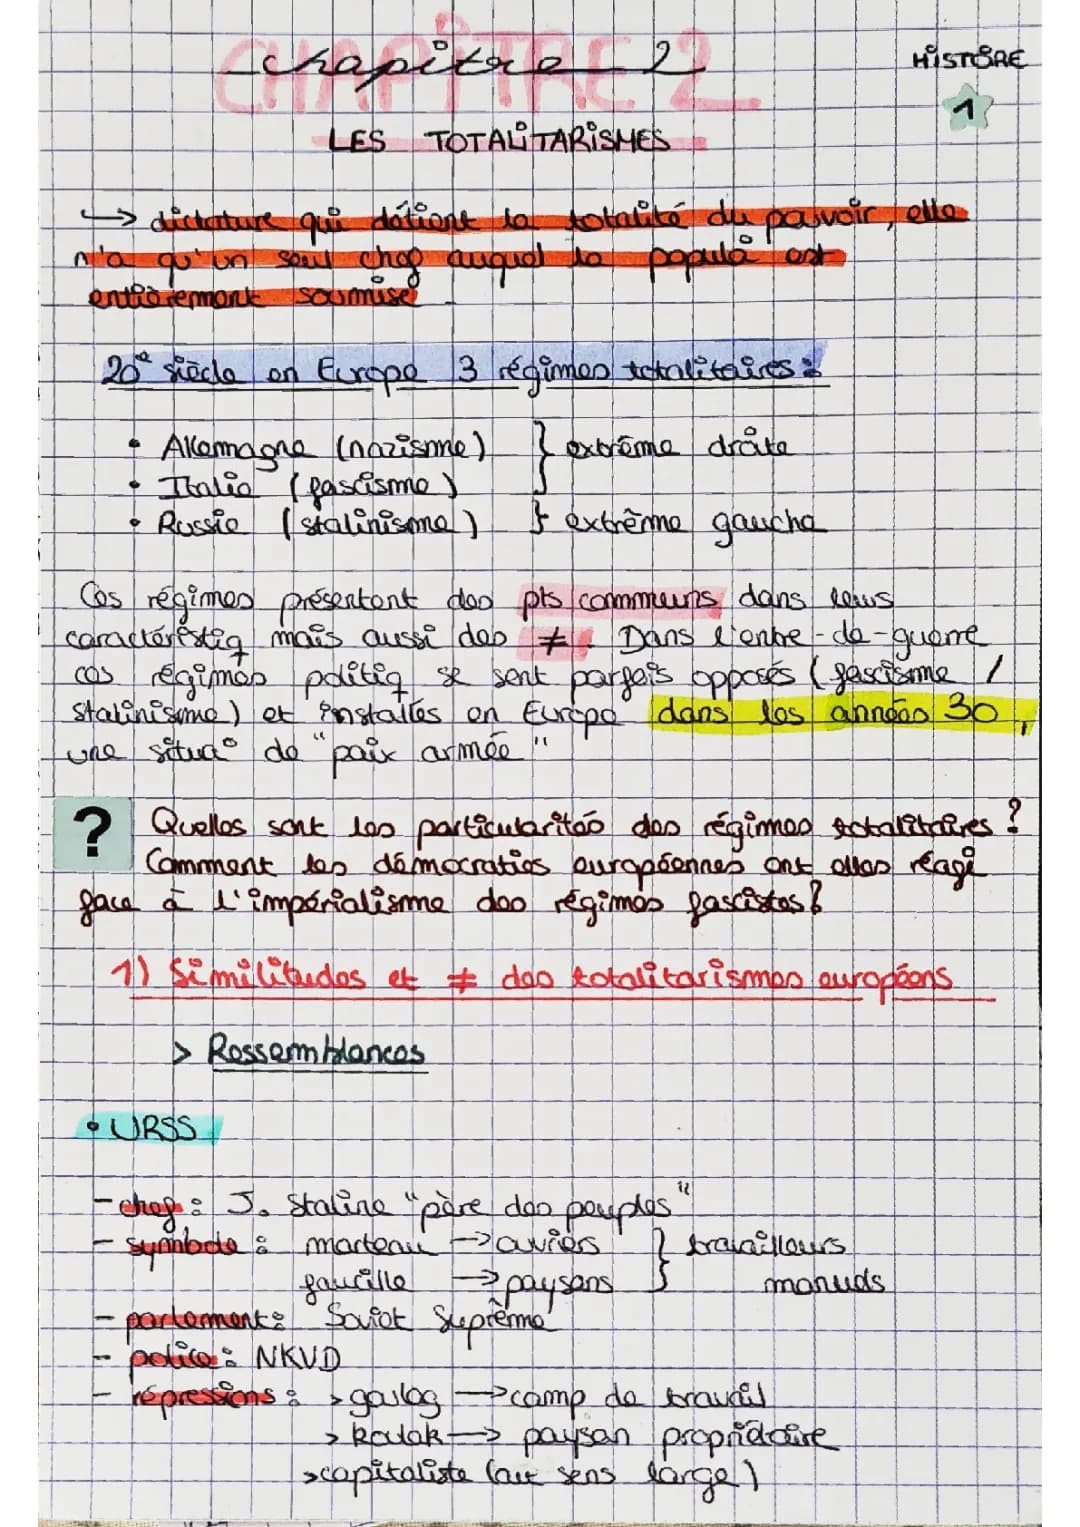 CHAPITRE 2
chapitre 2
HISTOIRE
1
LES TOTALITARISMES
→ dictature qui détient la totalité du pouvoir, elle
n'a qu'un seul chef auquel la popula° est
entièrement soumise.
20e siècle en Europe 3 régimes totalitaires :
• Allemagne (nazisme) } extrême droite
• Italie (fascisme)
• Russie (stalinisme) } extrême gauche
Ces régimes présentent des pts communs dans leurs
caractéristiq mais aussi des ≠. Dans l'entre-de-guerre
ces régimes politiq se sont parfois opposés (fascisme /
stalinisme) et installés en Europe dans les années 30,
une situa° de "paix armée"
? Quelles sont les particularités des régimes totalitaires ?
Comment les démocraties européennes ont elles réagi
face à l'impérialisme des régimes fascistes ?
1) Similitudes et ≠ des totalitarismes européens
> Ressemblances
• URSS
- chef : J. Staline "père des peuples"
- symbole : marteau → ouvriers } travailleurs
faucille → paysans manuels
- parlement : Soviet Suprême
- police : NKVD
- répressions : > goulag → camp de travail
> koulak → paysan propriétaire
> capitaliste (au sens large)